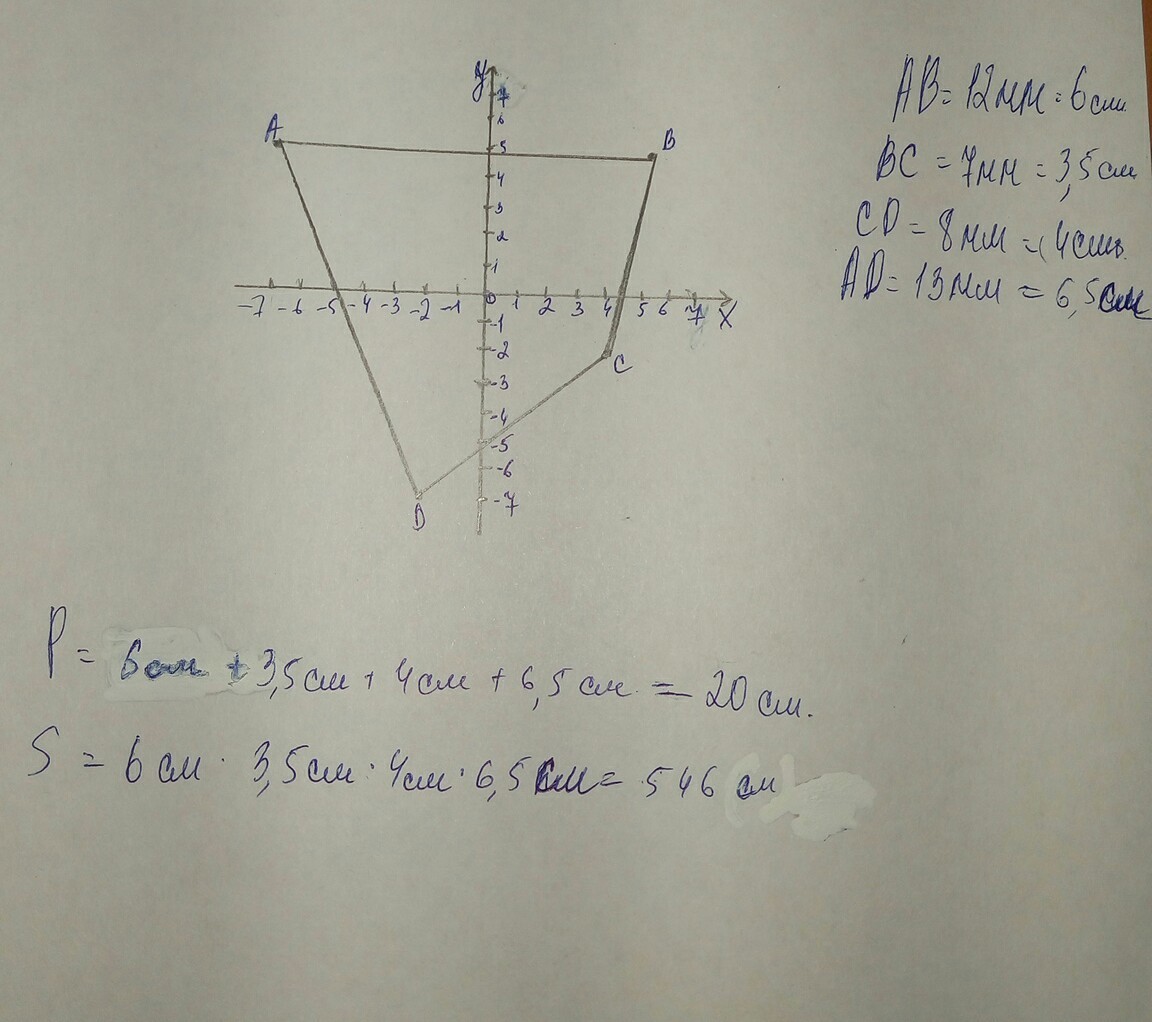 y
7
6
A
B
5
4
3
2
1
-7 -6 -5 -4 -3 -2 -1 0 1 2 3 4 5 6 7 X
-1
-2
C
-3
-4
-5
-6
-7
D
AB = 12мм = 6см
BC = 7мм = 3,5см
CD = 8мм = 4см
AD = 13мм = 6,5см
P = 6см + 3,5см + 4см + 6,5см = 20см.
S = 6см · 3,5см · 4см · 6,5см = 546 см